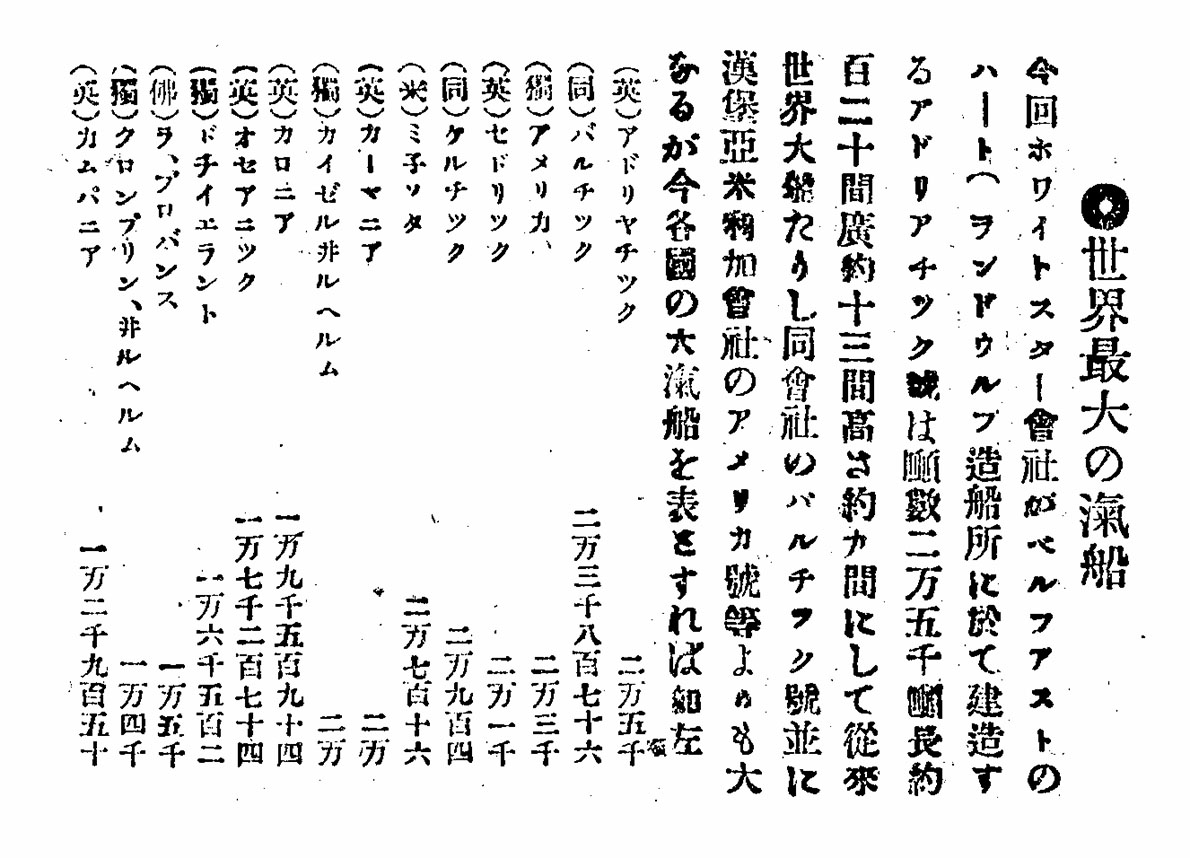 ◉世界最大の滊船
今回ホワイトスター會社がベルファストの
ハート(ヲンドウルフ造船所に於て建造す
るアドリアチック號は噸數二万五千噸長約
百二十間廣約十三間高さ約九間にして從來
世界大船たりし同會社のバルチック號並に
漢堡亞米利加會社のアメリカ號等よりも大
なるが今各國の大滊船を表とすれば如左
(英)アドリヤチツク 二万五千噸
(同)バルチツク 二万三千八百七十六
(獨)アメリカ、 二万三千
(英)セドリツク 二万一千
(同)ケルチツク 二万九百四
(米)ミ子ソタ 二万七百十六
(英)カーマニア 二万
(獨)カイゼル井ルヘルム 二万
(英)カロニア 一万九千五百九十四
(英)オセアニツク 一万七千二百七十四
(獨)ドチイエラント 一万六千五百二
(佛)ラ、プロバンス 一万五千
(獨)クロンプリン、井ルヘルム 一万四千
(英)カムパニア 一万二千九百五十